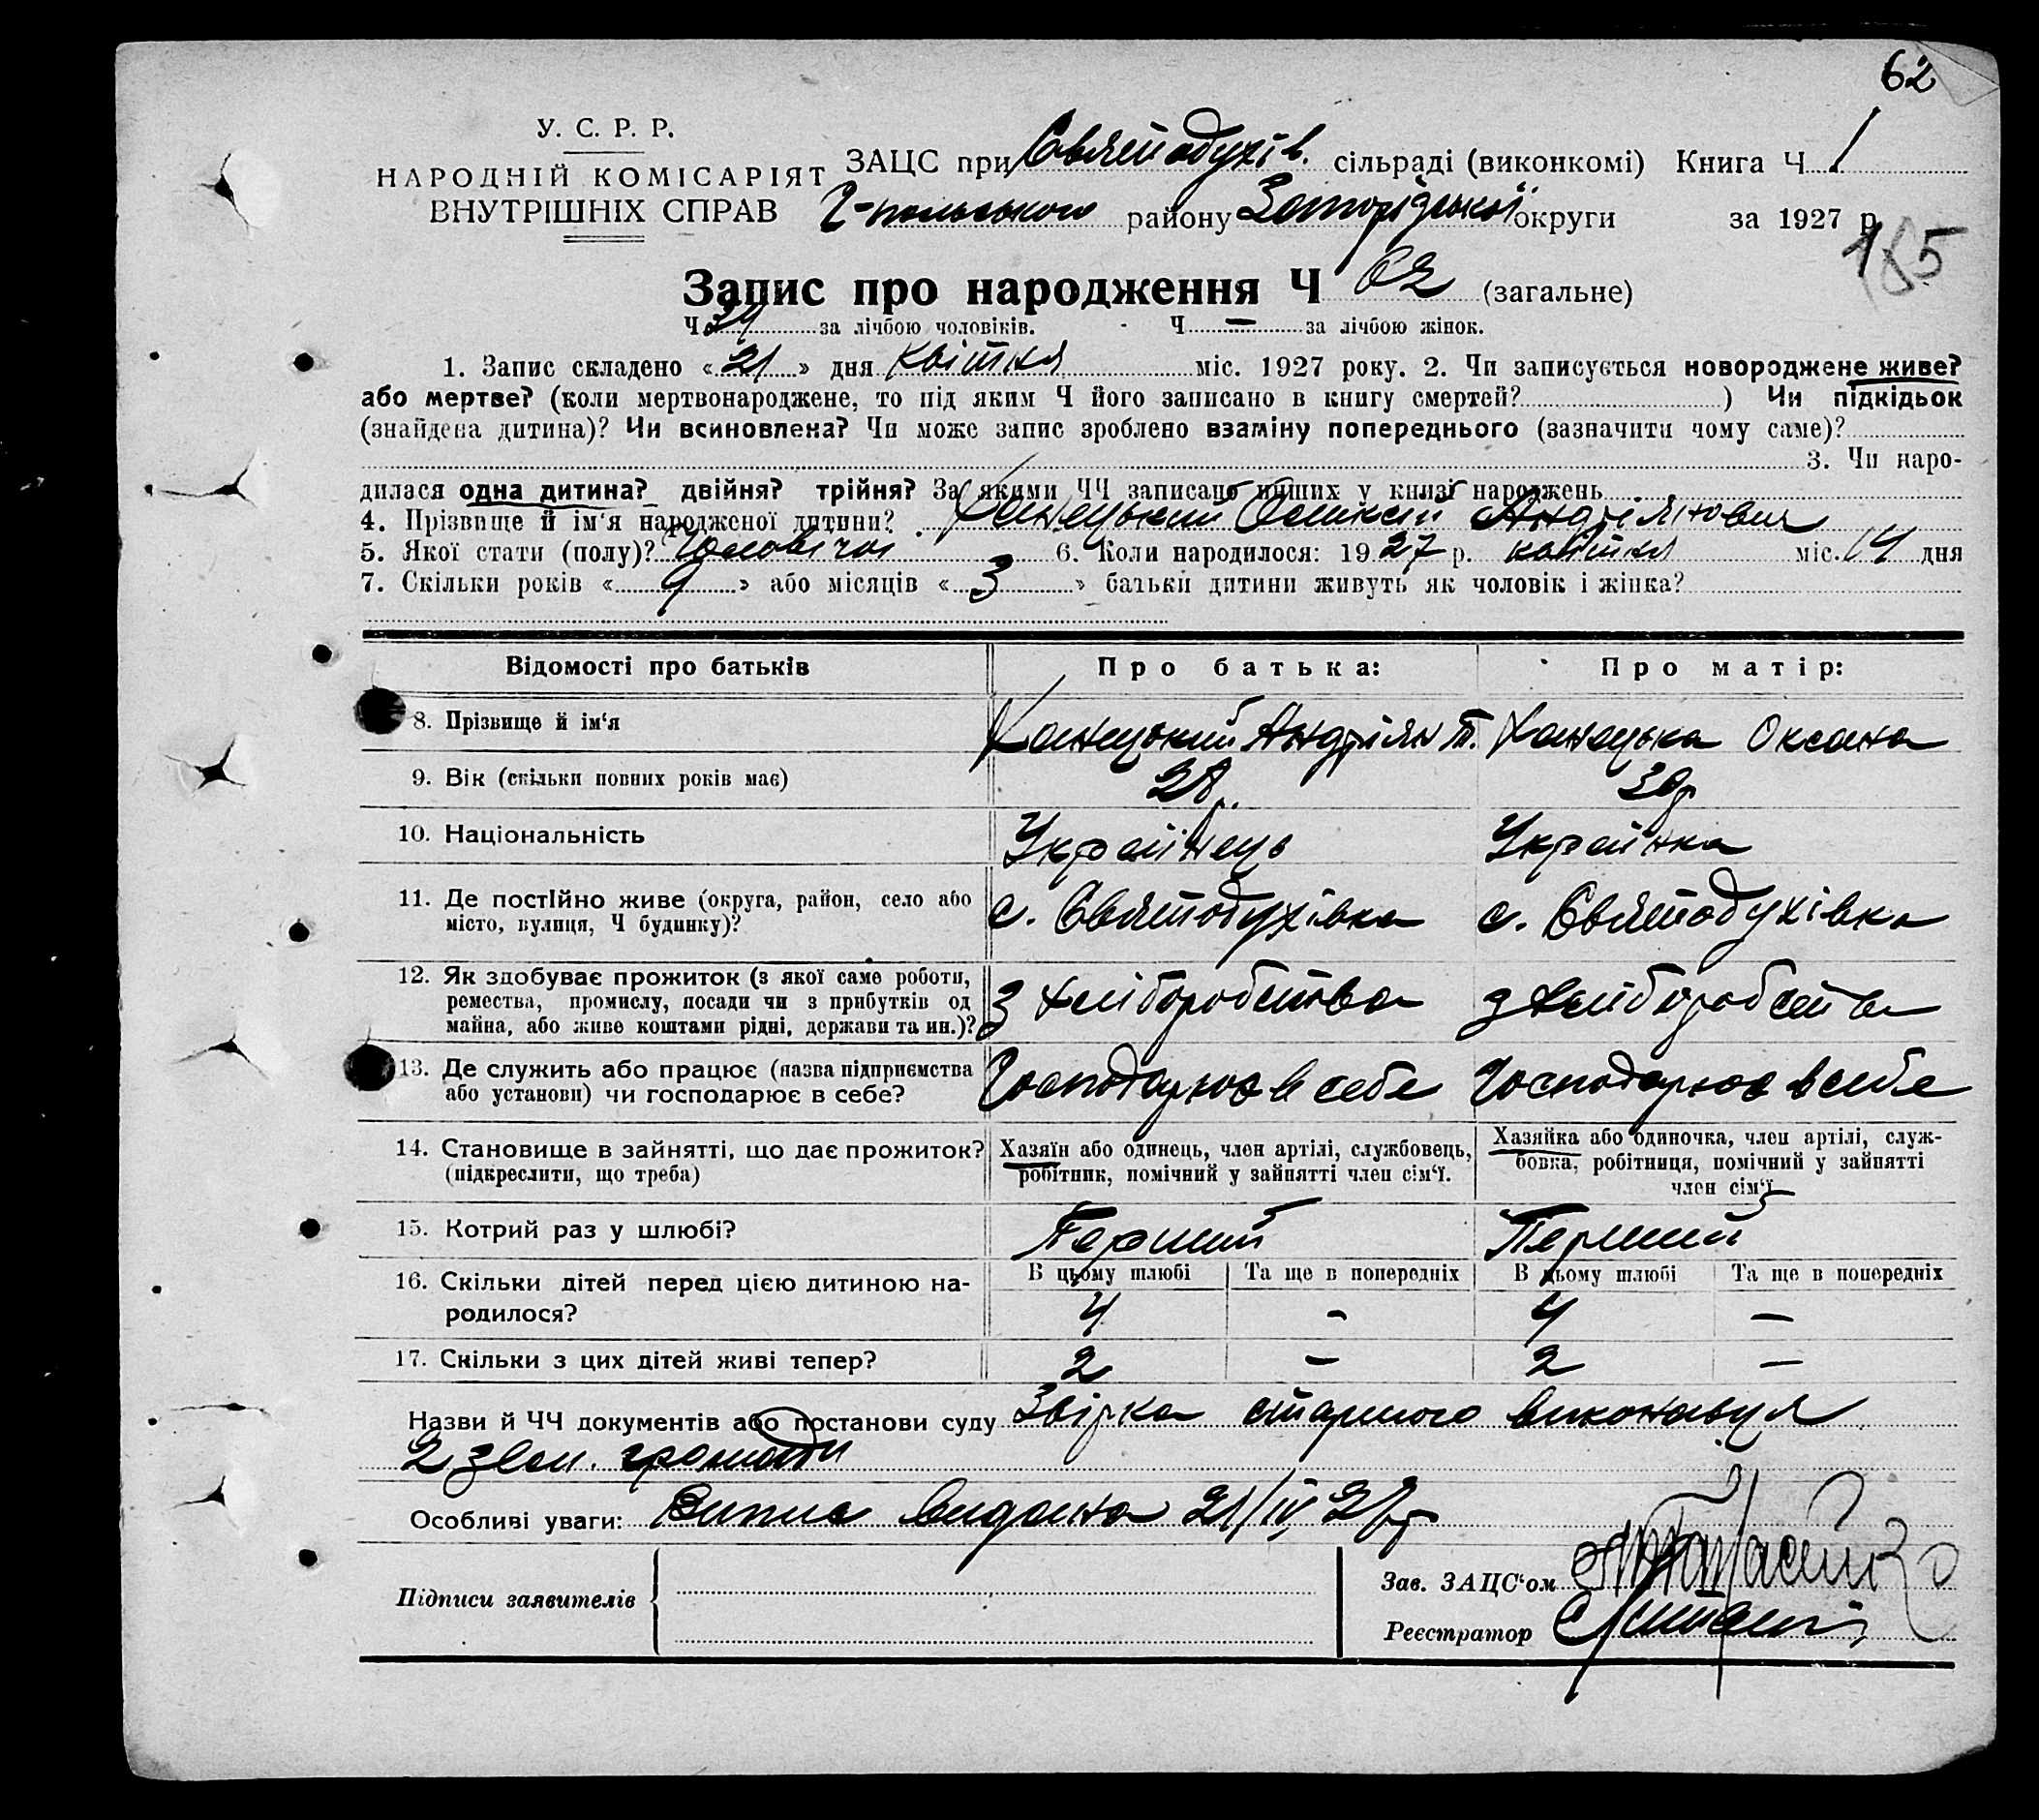 62
У. С. Р. Р.
НАРОДНІЙ КОМІСАРІЯТ
ВНУТРІШНІХ СПРАВ
ЗАЦС при Святодухів. сільраді (виконкомі) Книга Ч 1
Г-польського району Запорізької округи за 1927 р.
185
Запис про народження Ч 62 (загальне)
Ч 34 за лічбою чоловіків. Ч — за лічбою жінок.
1. Запис складено « 21 » дня квітня міс. 1927 року. 2. Чи записується новороджене живе?
або мертве? (коли мертвонароджене, то під яким Ч його записано в книгу смертей? ) Чи підкідьок
(знайдена дитина)? Чи всиновлена? Чи може запис зроблено взаміну попереднього (зазначити чому саме)?
3. Чи наро-
дилася одна дитина? двійня? трійня? За якими ЧЧ записано инших у книзі народжень
4. Прізвище й ім‘я народженої дитини? Ханецький Андріянович
5. Якої стати (полу)? Чоловічої 6. Коли народилося: 1927 р. квітня міс. 14 дня
7. Скільки років « 9 » або місяців « 3 » батьки дитини живуть як чоловік і жінка?
Відомості про батьків Про батька: Про матір:
8. Прізвище й ім‘я Ханецький Андріян Т. Ханецька Оксана
9. Вік (скільки повних років має) 28 р. 30 р
10. Національність Українець Українка
11. Де постійно живе (округа, район, село або
місто, вулиця, Ч будинку)? с. Святодухівка с. Святодухівка
12. Як здобуває прожиток (з якої саме роботи,
ремества, промислу, посади чи з прибутків од
майна, або живе коштами рідні, держави та ин.)? З хліборобства з хліборобства
13. Де служить або працює (назва підприємства
або установи) чи господарює в себе? Господарює в себе Господарює в себе
14. Становище в зайнятті, що дає прожиток?
(підкреслити, що треба)
Хазяїн або одинець, член артілі, службовець,
робітник, помічний у зайнятті член сім‘ї.
Хазяйка або одиночка, член артілі, служ-
бовка, робітниця, помічний у зайнятті
член сім‘ї
15. Котрий раз у шлюбі? Перший Перший
16. Скільки дітей перед цією дитиною на-
родилося?
В цьому шлюбі Та ще в попередніх В цьому шлюбі Та ще в попередніх
4 - 4 —
17. Скільки з цих дітей живі тепер? 2 — 2 —
Назви й ЧЧ документів або постанови суду Звірка старшого виконавця
2 зем. громади
Особливі уваги: Випис видана 21/IV 27 р
Підписи заявителів
Зав. ЗАЦС‘ом
Реєстратор